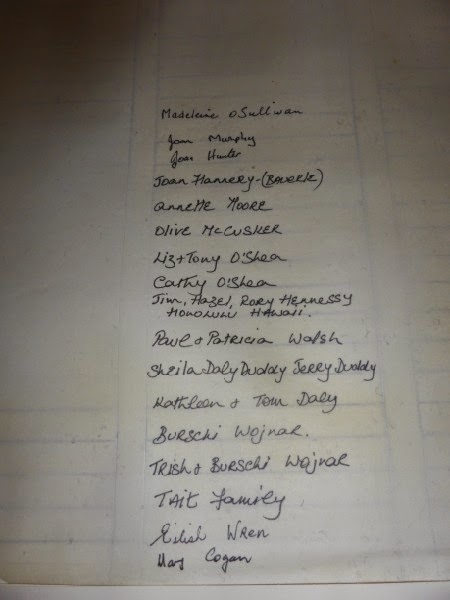 Madeleine O'Sullivan
Joan Murphy
Joan Hunter
Joan Flannery-(Bourke)
Annette Moore
Olive McCusker
Liz + Tony O'Shea
Cathy O'Shea
Jim, Hazel, Rory Hennessy
Honolulu Hawaii.
Paul & Patricia Walsh
Sheila Daly Duddy Jerry Duddy
Kathleen & Tom Daly
Burschi Wojnar.
Trish & Burschi Wojnar
Tait Family
Eilish Wren
Mary Cogan